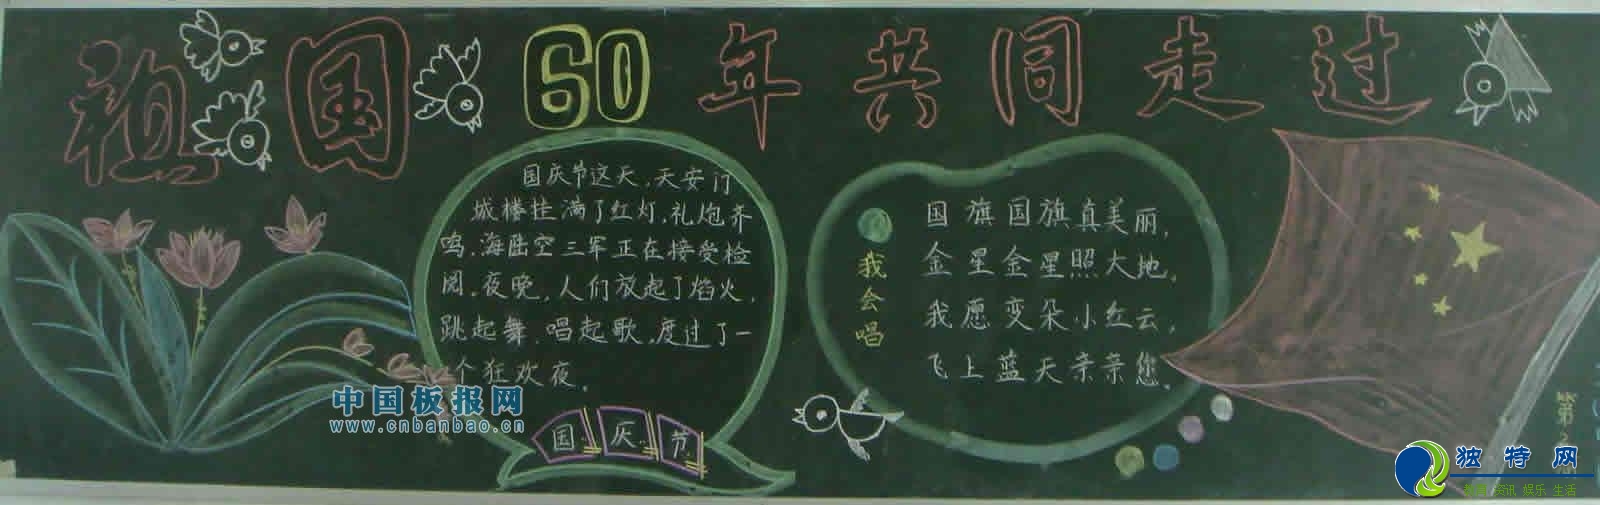 祖国60年共同走过
国庆节这天，天安门
城楼挂满了红灯，礼炮齐
鸣，海陆空三军正在接受检
阅。夜晚，人们放起了焰火，
跳起舞，唱起歌，度过了一
个狂欢夜。
国庆节
我会唱
国旗国旗真美丽，
金星金星照大地，
我愿变朵小红云，
飞上蓝天亲亲您。
中国板报网
www.cnbanbao.cn
第2
独特网
资讯 娱乐 生活